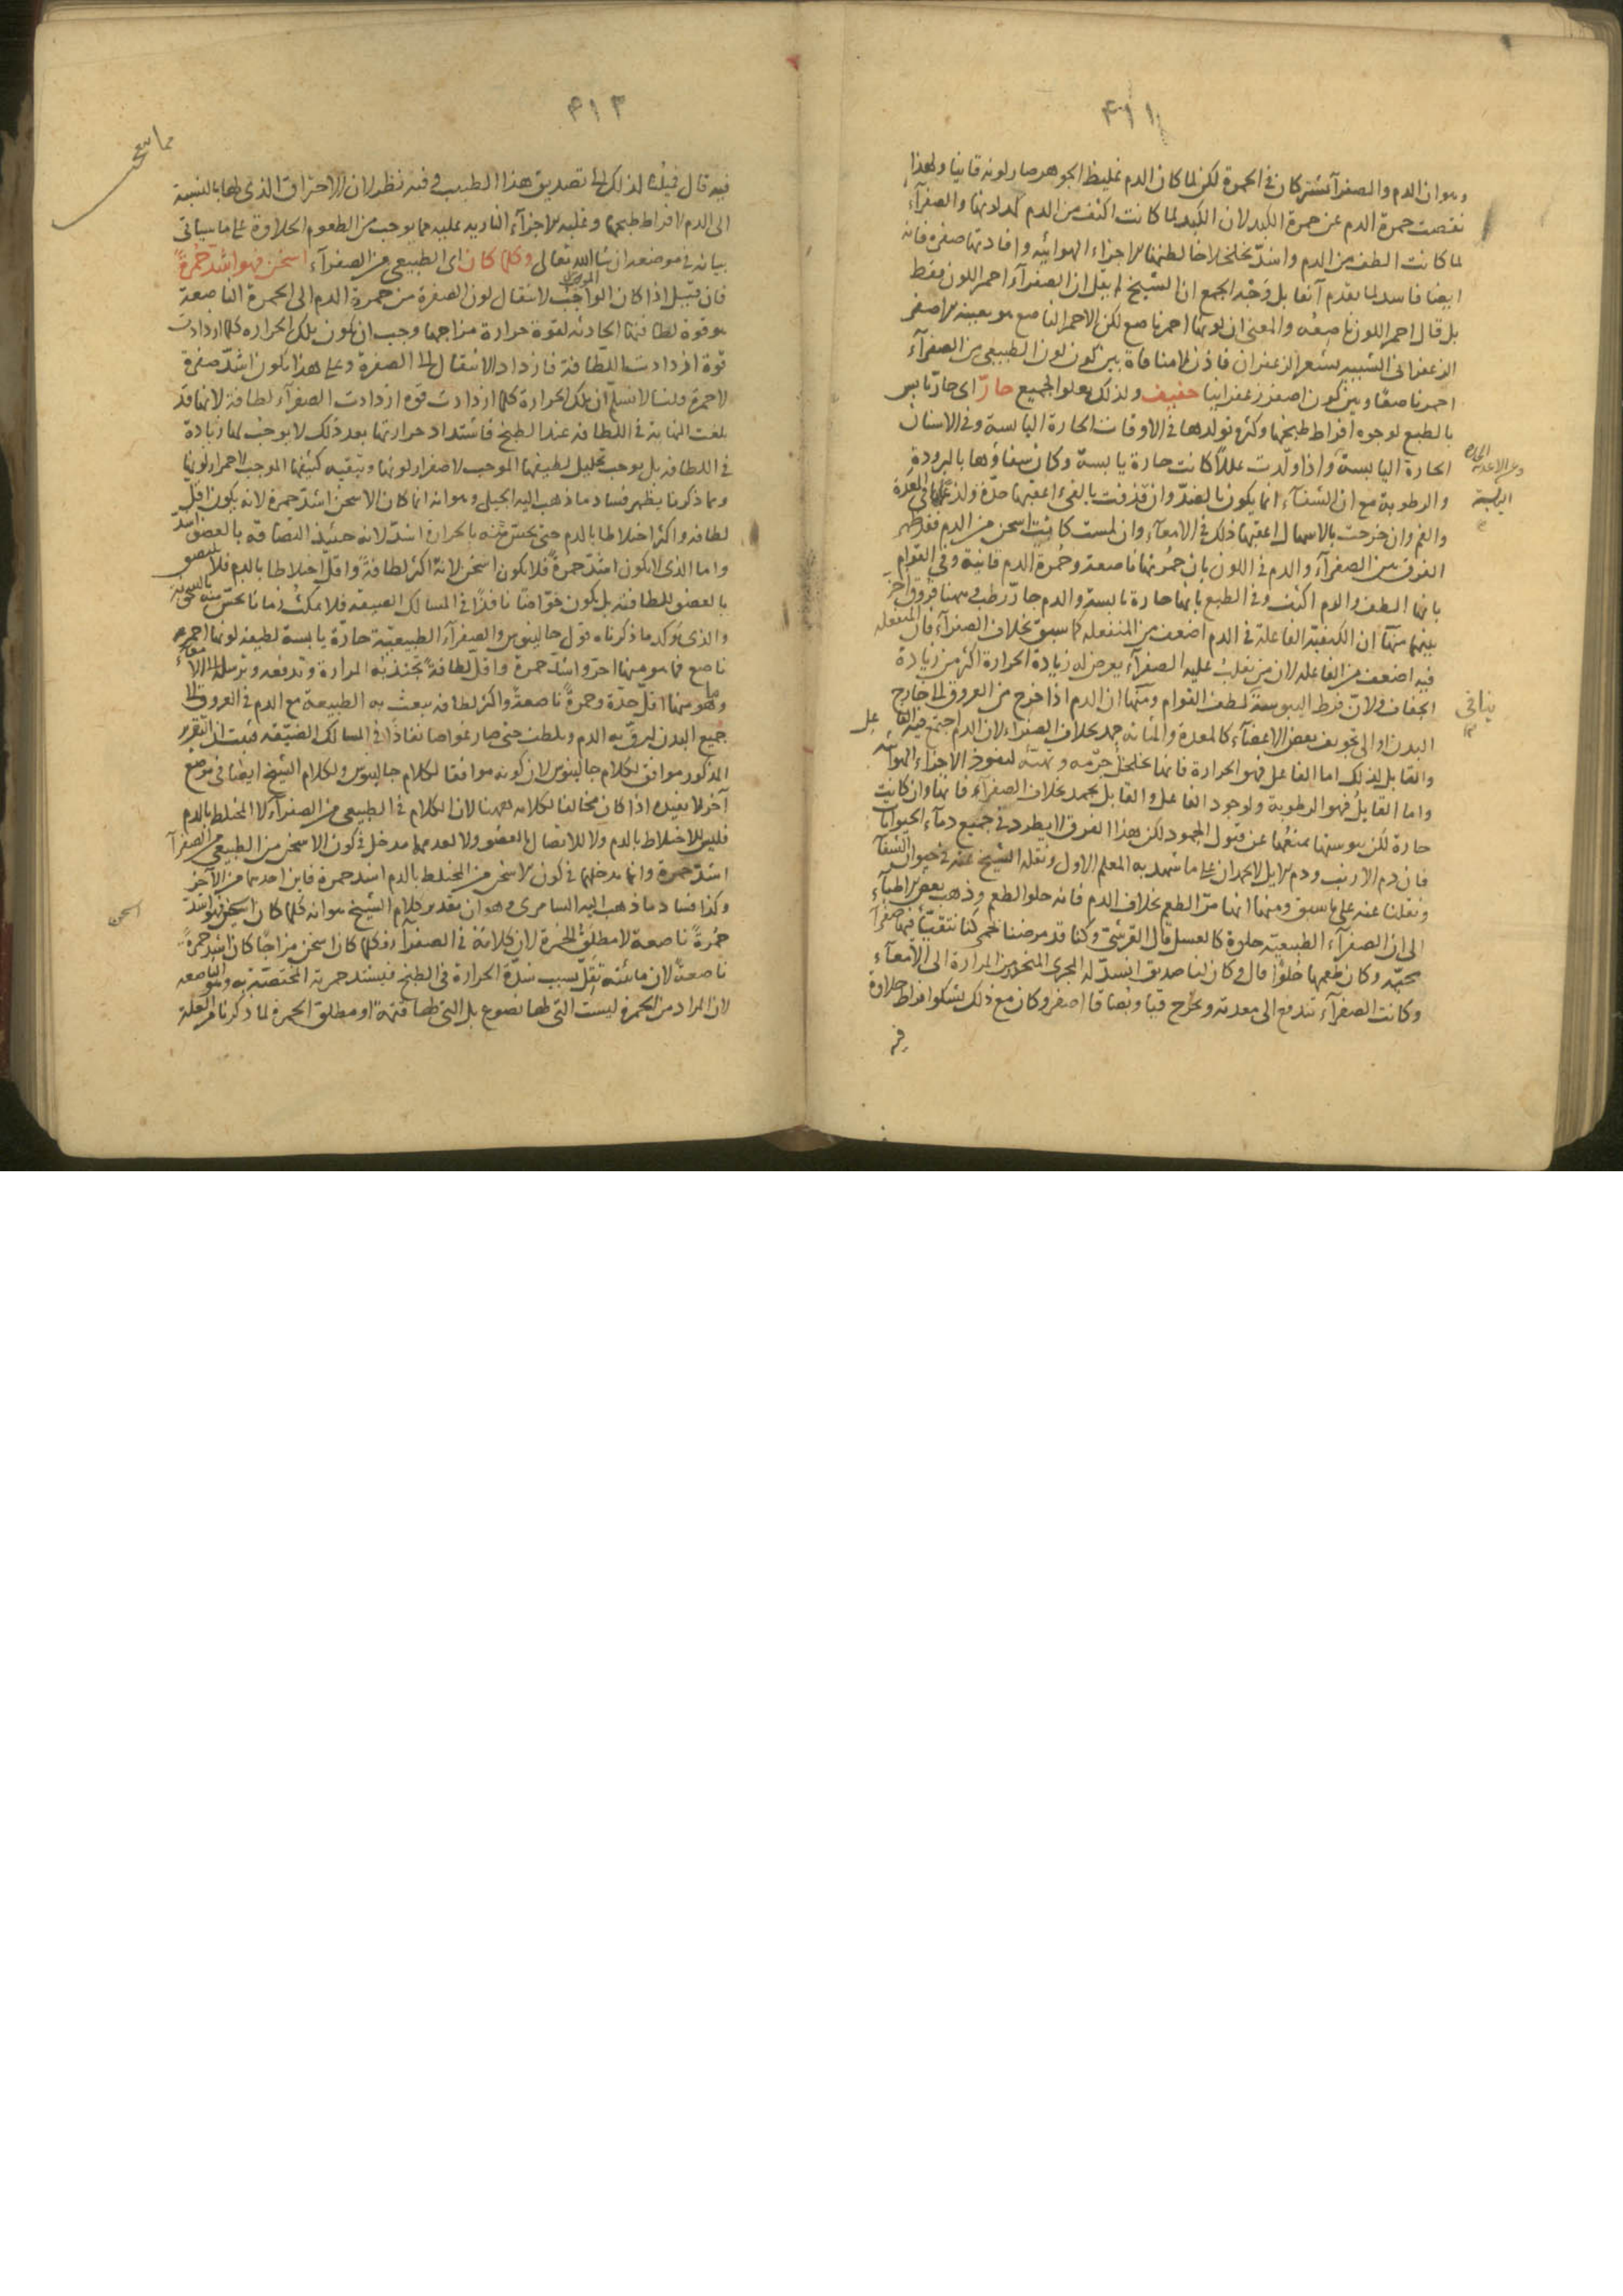 ٤١١
وهو ان الدم والصفرآ تشتركان فى الحمرة لكن لما كان الدم غليظ الجوهر صار لونه قانيا ولهذا
نقصت حمرة الدم عن حمرة الكبد لان الكبد لما كانت اكثف من الدم والصفرآء
لما كانت الطف من الدم واشد تخلخلا خالطتها الاجزاء الهوائيه وافادتها صفرة فانه
ايضا فاسد لما تقدم آنفا بل وجه الجمع ان الشيخ لم يقل ان الصفرآء احمر اللون فقط
بل قال احمر اللون ناصعه والمعنى ان لونها احمر ناصع لكن الاحمر الناصع هو بعينه الاصفر
الزعفرانى الشبيه بشعر الزعفران فاذن لا منافاة بين كون لون الطبيعى من الصفرآء
احمر ناصعا وبين كون اصفر زعفرانيا خفيف ولذلك يعلو الجميع حارّ اى حارّ يابس
بالطبع لوجوه افراط طبخها وكثرة تولدها فى الاوقات الحارة اليابسة وفى الاسنان
الحارة اليابسة واذا ولّدت عللا كانت حارة يابسة وكان شفاؤها بالبرودة
والرطوبة مع ان الشفآء انما يكون بالضدّ وان قذفت بالقىء اعقبها حدّة ولذع فى المعدة
والفم وان خرجت بالاسهال اعقبها ذلك فى الامعآء وان لمست كانت اسخن من الدم فقد ظهر
الفرق بين الصفرآء والدم فى اللون بان حمرتها ناصعة وحمرة الدم قانية وفى القوام
بانها الطف والدم اكثف وفى الطبع بانها حارة يابسة والدم حارّ رطب وههنا فروق اخر
بينهما منها ان الكيفية الفاعلة فى الدم اضعف من المنفعله كما سبق بخلاف الصفرآء فان المنفعله
فيه اضعف من الفاعله لان من يغلب عليه الصفرآء يعرض له زيادة الحرارة اكثر من زيادة
الجفاف ولانّ فرط اليبوسة لطف القوام ومنها ان الدم اذا خرج من العروق الى خارج
البدن او الى تجويف بعض الاعضآء كالمعدة والمثانه جمد بخلاف الصفراء لان الدم اجتمع فيه الفاعل
والقابل لذلك اما الفاعل فهو الحرارة فانها تخلخل جرمه وتهيئه لنفوذ الاجزاء الهوائيه
واما القابل فهو الرطوبة ولوجود الفاعل والقابل يجمد بخلاف الصفرآء فانها وان كانت
حارة لكن يبوستها تمنعها عن قبول الجمود لكن هذا الفرق لا يطرد فى جميع دمآء الحيوانات
فان دم الارنب ودم الايل لا يجمدان على ما شهد به المعلم الاول ونقله الشيخ عنه فى حيوان الشفآ
ونقلنا عنه على ما سبق ومنها انها مرّ الطعم بخلاف الدم فانه حلو الطعم وذهب بعض الاطبآء
الى ان الصفرآء الطبيعية حلوة كالعسل قال القرشى وكنا قد مرضنا بحمى كنا نتقيأ فيها صفرآ
محيّه وكان طعمها حلوا قال وكان لنا صديق انسدّ له المجرى المنحدر من المرارة الى الامعآء
وكانت الصفرآء تندفع الى معدته وتخرج قيأ وبصاقا اصفر وكان مع ذلك يشكو افراط حلاوة
اليابسة
٤١٢
فيه قال فملنا لذلك الى تصديق هذا الطبيب وفيه نظر لان الاحتراق الذى لها بالنسبة
الى الدم لافراط طبخها وغلبه الاجزآء الناريه عليه مما يوجب من الطعوم الحلاوة على ما سياتى
بيانه فى موضعه ان شا الله تعالى وكلما كان اى الطبيعى من الصفرآء اسخن فهو اشد حمرة
فان قيل اذا كان الواجب لانتقال لون الصفرة من حمرة الدم الى الحمرة الناصعة
هو قوة لطافتها الحادثه لقوة حرارة مزاجها وجب ان يكون تلك الحراره كلما ازدادت
قوة ازدادت اللطافة فازداد الانتقال الى الصفرة وعلى هذا يكون اشدّ صفرة
لا حمرة قلنا لا نسلم ان تلك الحرارة كلما ازدادت قوة ازدادت الصفرآء لطافة لانها قد
بلغت النهاية فى اللطافه عند الطبخ فاشتداد حرارتها بعد ذلك لا يوجب لها زيادة
فى اللطافه بل يوجب تحليل لطيفها الموجب لاصفرار لونها وتبقيه كثيفها الموجب لاحمرار لونها
ومما ذكرنا يظهر فساد ما ذهب اليه الجيلى وهو انه انما كان الاسخن اشدّ حمرة لانه يكون اقل
لطافه واكثر اختلاطا بالدم حتى يحسّ منه بالحرارة اشدّ لانه حينئذ التصاقه بالعضو اشدّ
واما الذى لا يكون اشدّ حمرة فلا يكون اسخن لانه اكثر لطافة واقل اختلاطا بالدم فلا يلتصق
بالعضو للطافته بل يكون غوّاصا نافذا فى المسالك الضيقه فلا يمكث زمانا يحسّ منه بالسخونة
والذى يؤكد ما ذكرناه قول جالينوس والصفرآء الطبيعية حارّة يابسة لطيفه لونها احمر
ناصع فما هو منها احرّ واشد حمرة واقل لطافة تجتذبه المرارة وتدفعه وترسله الى الامعاء
وما هو منها اقلّ حدّة وحمرة ناصعة واكثر لطافه يبعث به الطبيعة مع الدم فى العروق الى
جميع البدن ليرقّ به الدم ويلطف حتى صار غواصا نفاذا فى المسالك الضيّقه فثبت ان التقرير
المذكور موافق لكلام جالينوس لان كونه موافقا لكلام جالينوس ولكلام الشيخ ايضا فى موضع
آخر لا يفيده اذا كان مخالفا لكلامه ههنا لان الكلام فى الطبيعى من الصفرآء لا المختلط بالدم
فليس للاختلاط بالدم ولا للاتصال بالعضو ولا لعدمهما مدخل فى كون الاسخن من الطبيعى من الصفرآ
اشدّ حمرة وانما مدخلها فى كون الاسخن من المختلط بالدم اشد حمرة فاين احدهما من الآخر
وكذا فساد ما ذهب اليه السامرى وهو ان تقدير كلام الشيخ هو انه كلما كان اسخن فهو اشدّ
حمرة ناصعة لا مطلق الحمرة لان كلامه فى الصفرآء فكلما كان اسخن مزاجا كان اشد حمرة
ناصعة لان مائيته تقلّ بسبب شدّة الحرارة فى الطبخ فيشتد حمرته المختصّة به وهو الناصعه
لان المراد من الحمرة ليست التى لها نصوع بل التى لها قتمة او مطلق الحمرة لما ذكرنا من العلة